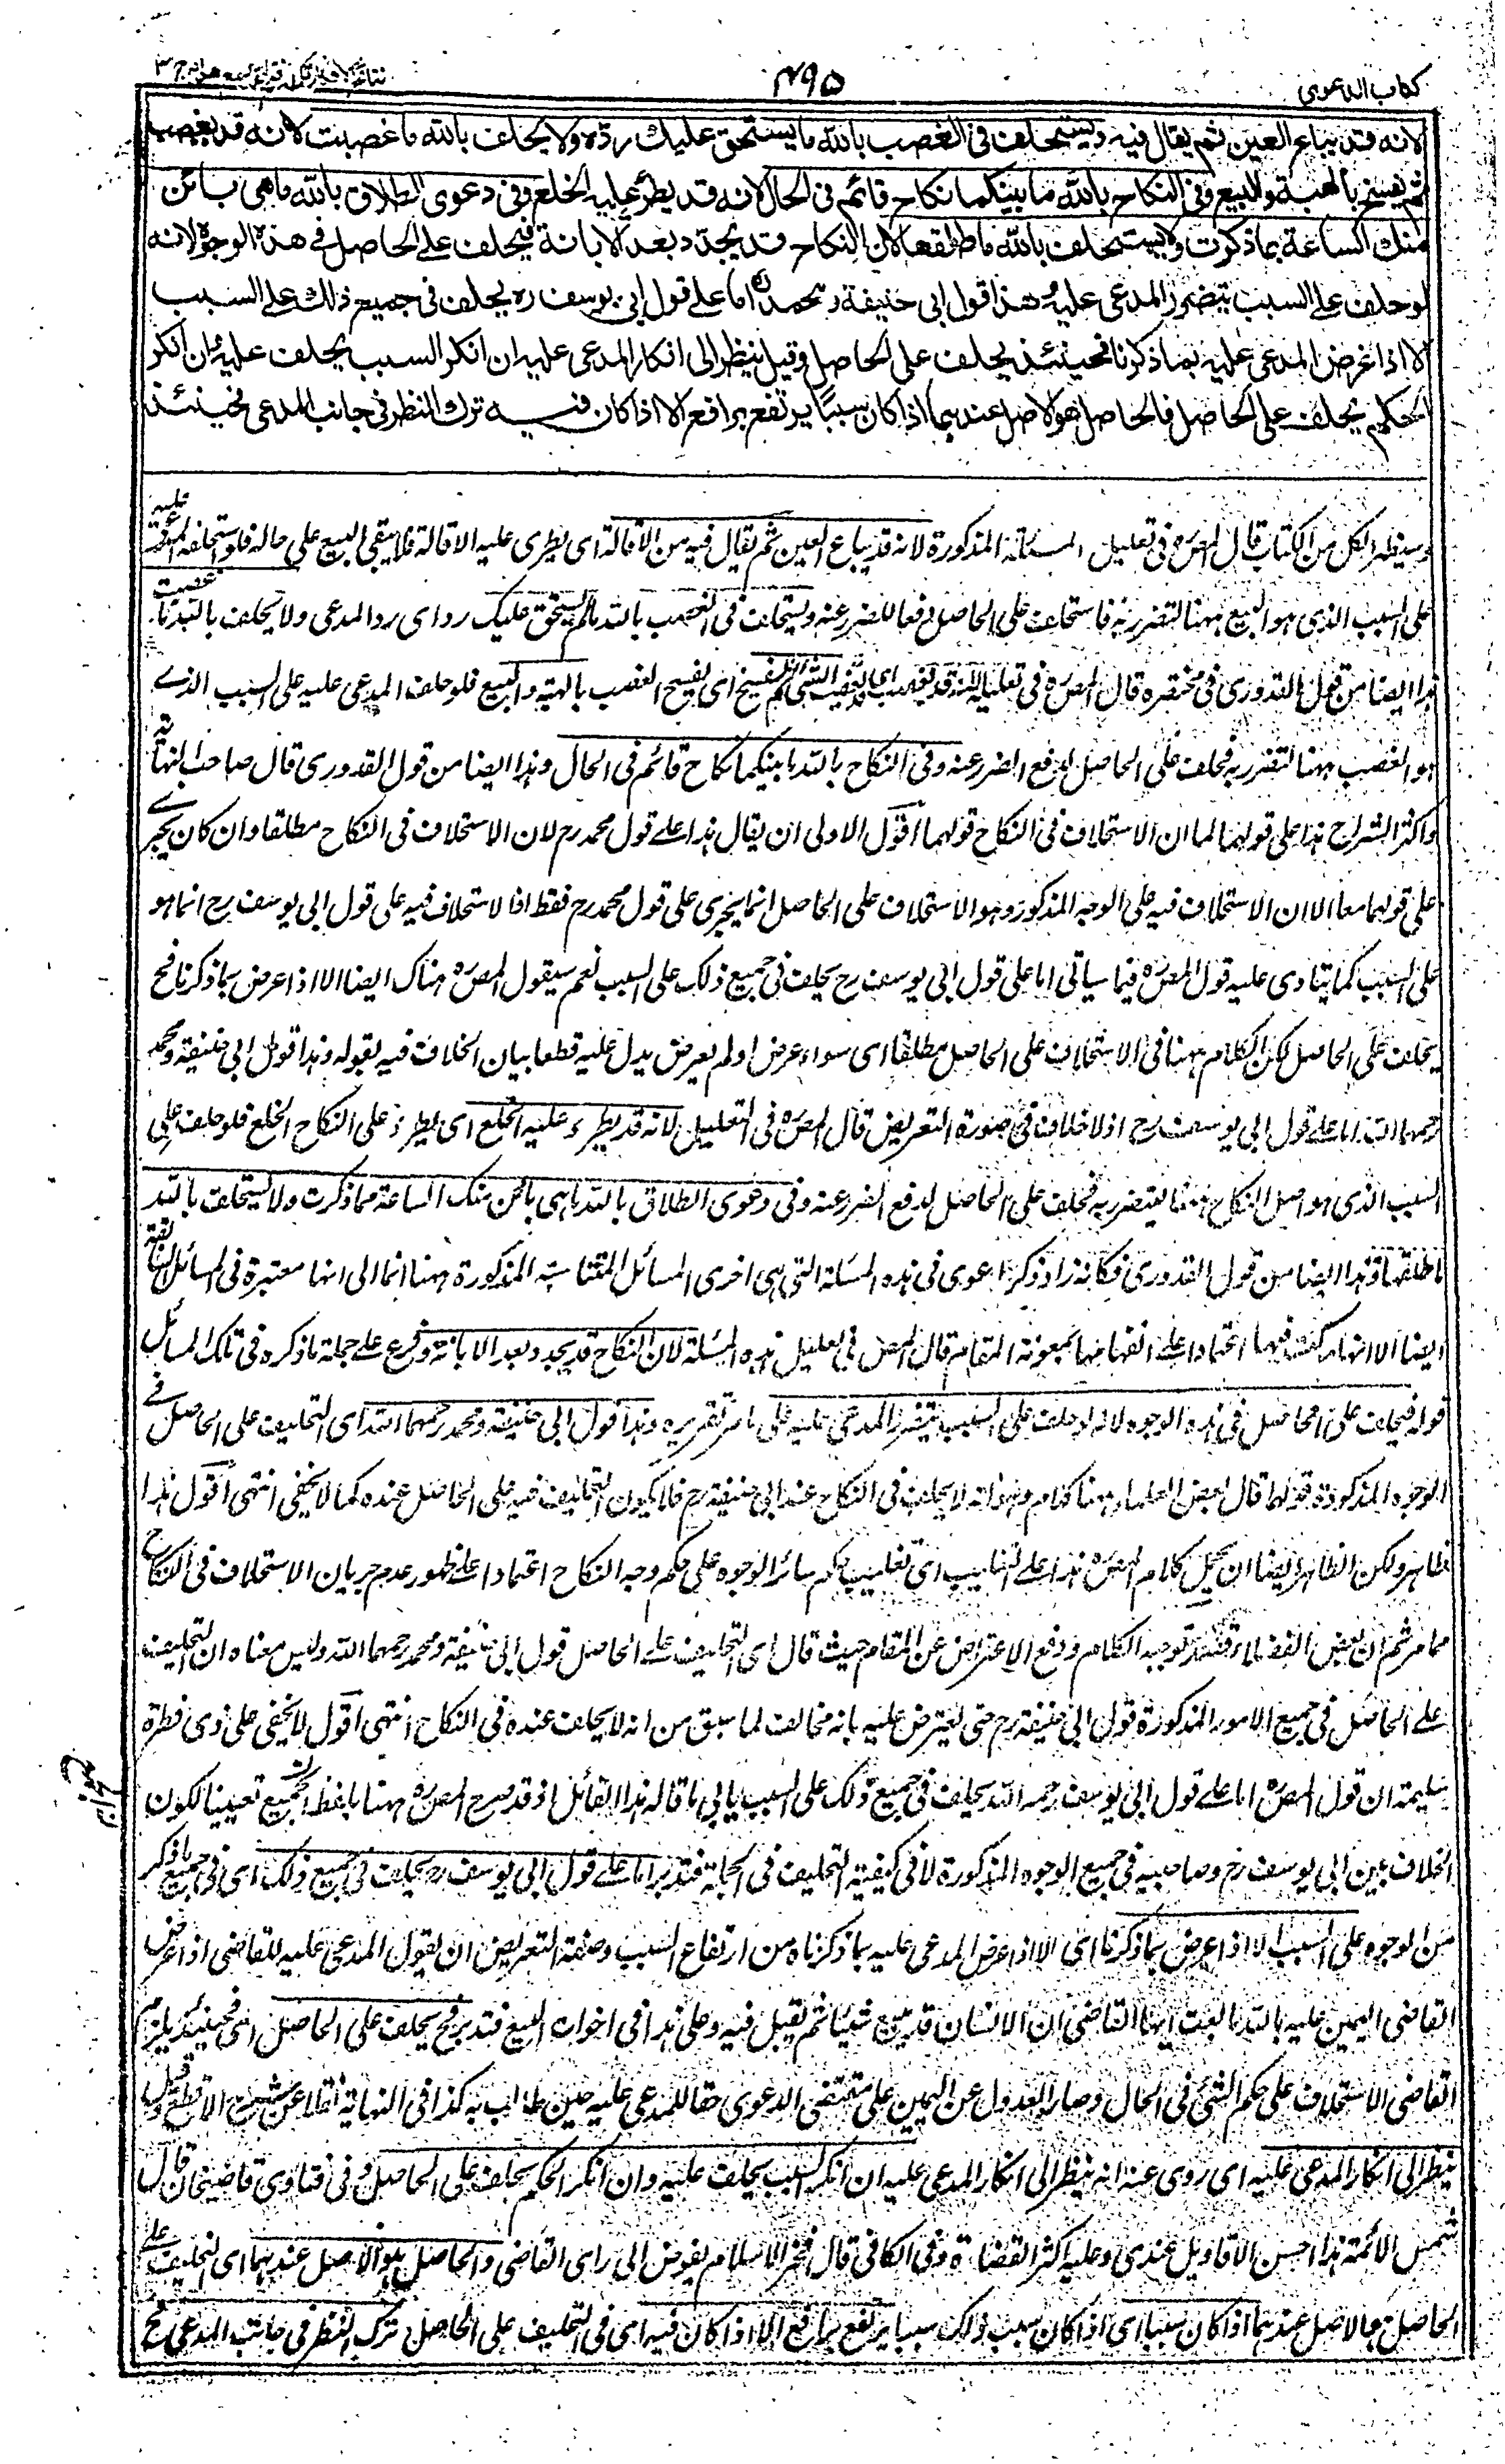 كتاب الدعوى
٤٩٥
نتائج الافكار تكملة فتح القدير مع هدايه ج ٣
لانه قد يباع العين ثم يقال فيه ويستحلف فى الغصب بالله ما يستحق عليك رده ولا يحلف بالله ما غصبت لانه قد يغصب
ثم يفسخ بالهبة والبيع وفى النكاح بالله ما بينكما نكاح قائم فى الحال لانه قد يطرأ عليه الخلع وفى دعوى الطلاق بالله ما هى بائن
منك الساعة بما ذكرت ولا يستحلف بالله ما طلقها لان النكاح قد يجدد بعد الابانة فيحلف على الحاصل فى هذه الوجوه لانه
لو حلف على السبب يتضرر المدعى عليه وهذا قول ابى حنيفة ومحمد رح اما على قول ابى يوسف ره يحلف فى جميع ذلك على السبب
الا اذا عرض المدعى عليه بما ذكرنا فحينئذ يحلف على الحاصل وقيل ينظر الى انكار المدعى عليه ان انكر السبب يحلف عليه وان انكر
الحكم يحلف على الحاصل فالحاصل هو الاصل عندهما اذا كان سببا يرتفع برافع الا اذا كان فيه ترك النظر فى جانب المدعى فحينئذ
وسيظهر الكل من الكتاب قال المصره فى تعليل المسئلة المذكورة لانه قد يباع العين ثم يقال فيه من الاقالة اى يطرى عليه الاقالة فلا يبقى البيع على حاله فلو استحلف المدعى عليه
على السبب الذى هو البيع ههنا لتضرر به فاستحلف على الحاصل دفعا للضرر عنه ويستحلف فى الغصب بالله ما يستحق عليك رده اى رد المدعى ولا يحلف بالله ما غصبت
هذا ايضا من قول القدورى فى مختصره قال المصره فى تعليله لانه قد يغصب اى قد يغصب الشئ ثم يفسخ اى يفسخ الغصب بالهبة والبيع فلو حلف المدعى عليه على السبب الذى
هو الغصب ههنا لتضرر به فحلف على الحاصل لدفع الضرر عنه وفى النكاح بالله ما بينكما نكاح قائم فى الحال وهذا ايضا من قول القدورى قال صاحب النهاية
واكثر الشراح هذا على قولهما لما ان الاستحلاف فى النكاح قولهما اقول الاولى ان يقال هذا على قول محمد رح لان الاستحلاف فى النكاح مطلقا وان كان يجرى
على قولهما معا الا ان الاستحلاف فيه على الوجه المذكور وهو الاستحلاف على الحاصل انما يجرى على قول محمد رح فقط اذ الاستحلاف فيه على قول ابى يوسف رح انما هو
على السبب كما ينادى عليه قول المصره فيما سياتى اما على قول ابى يوسف رح يحلف فى جميع ذلك على السبب نعم سيقول المصره هناك ايضا الا اذا عرض بما ذكرنا فح
يحلف على الحاصل لكن الكلام ههنا فى الاستحلاف على الحاصل مطلقا اى سواء عرض او لم يعرض يدل عليه قطعا بيان الخلاف فيه بقوله وهذا قول ابى حنيفة ومحمد
رحمهما الله اما على قول ابى يوسف رح اذ لا خلاف فى صورة التعريض قال المصره فى التعليل لانه قد يطرء عليه الخلع اى يطرء على النكاح الخلع فلو حلف على
السبب الذى هو اصل النكاح ههنا يتضرر به فحلف على الحاصل لدفع الضرر عنه وفى دعوى الطلاق بالله ما هى بائن منك الساعة مما ذكرت ولا يستحلف بالله
ما طلقها وهذا ايضا من قول القدورى فكانه زاد ذكر الدعوى فى هذه المسئلة التى هى اخرى المسائل المتناسبة المذكورة ههنا ايماء الى انها معتبرة فى المسائل السابقة
ايضا الا انها تركت فيها اعتمادا على انفهامها بمعونة المقام قال المصره فى تعليل هذه المسئلة لان النكاح قد يجدد بعد الابانة وفرع على جملة ما ذكره فى تلك المسائل
قوله فيحلف على الحاصل فى هذه الوجوه لانه لو حلف على السبب يتضرر المدعى عليه على ما مر تقريره وهذا قول ابى حنيفة ومحمد رحمهما الله اى التحليف على الحاصل فى
الوجوه المذكورة قولهما قال بعض العلماء ههنا كلام وهو انه لا يحلف فى النكاح عند ابى حنيفة رح فلا يكون التحليف فيه على الحاصل عنده كما لا يخفى انتهى اقول هذا
ظاهر ولكن الظاهر ايضا ان يحمل كلام المصره هذا على التغليب اى تغليب حكم سائر الوجوه على حكم وجه النكاح اعتمادا على ظهور عدم جريان الاستحلاف فى النكاح
مما مر ثم ان بعض الفضلاء قصد توجيه الكلام ودفع الاعتراض عن المقام حيث قال اى التحليف على الحاصل قول ابى حنيفة ومحمد رحمهما الله وليس معناه ان التحليف
على الحاصل فى جميع الامور المذكورة قول ابى حنيفة رح حتى يعترض عليه بانه مخالف لما سبق من انه لا يحلف عنده فى النكاح انتهى اقول لا يخفى على ذى فطرة
سليمة ان قول المصره اما على قول ابى يوسف رحمه الله يحلف فى جميع ذلك على السبب يابى ما قاله هذا القائل اذ قد صرح المصره ههنا بلفظ الجميع تعيينا لكون
الخلاف بين ابى يوسف رح وصاحبيه فى جميع الوجوه المذكورة لا فى كيفية التحليف فى الجملة فتدبر اما على قول ابى يوسف رح يحلف فى جميع ذلك اى فى جميع ما ذكر
من الوجوه على السبب الا اذا عرض بما ذكرنا اى الا اذا عرض المدعى عليه بما ذكرناه من ارتفاع السبب وصفة التعريض ان يقول المدعى عليه للقاضى اذا عرض
القاضى اليمين عليه بالله ما بعت ايها القاضى ان الانسان قد يبيع شيئا ثم يقيل فيه وعلى هذا فى اخوات البيع فتدبر فح يحلف على الحاصل اى فحينئذ يلزم
القاضى الاستحلاف على حكم الشئ فى الحال وصار العدول عن اليمين على مقتضى الدعوى حقا للمدعى عليه حين طالب به كذا فى النهاية نقلا عن شرح الاقطع وقيل
ينظر الى انكار المدعى عليه اى روى عنه انه ينظر الى انكار المدعى عليه ان انكر السبب يحلف عليه وان انكر الحكم يحلف على الحاصل وفى فتاوى قاضيخان قال
شمس الائمة هذا احسن الاقاويل عندى وعليه اكثر القضاة وفى الكافى قال فخر الاسلام يفوض الى راى القاضى والحاصل هو الاصل عندهما اى التحليف على
الحاصل هو الاصل عندهما اذا كان سببا اى اذا كان سبب ذلك سببا يرتفع برافع الا اذا كان فيه اى فى التحليف على الحاصل ترك النظر فى جانب المدعى فح